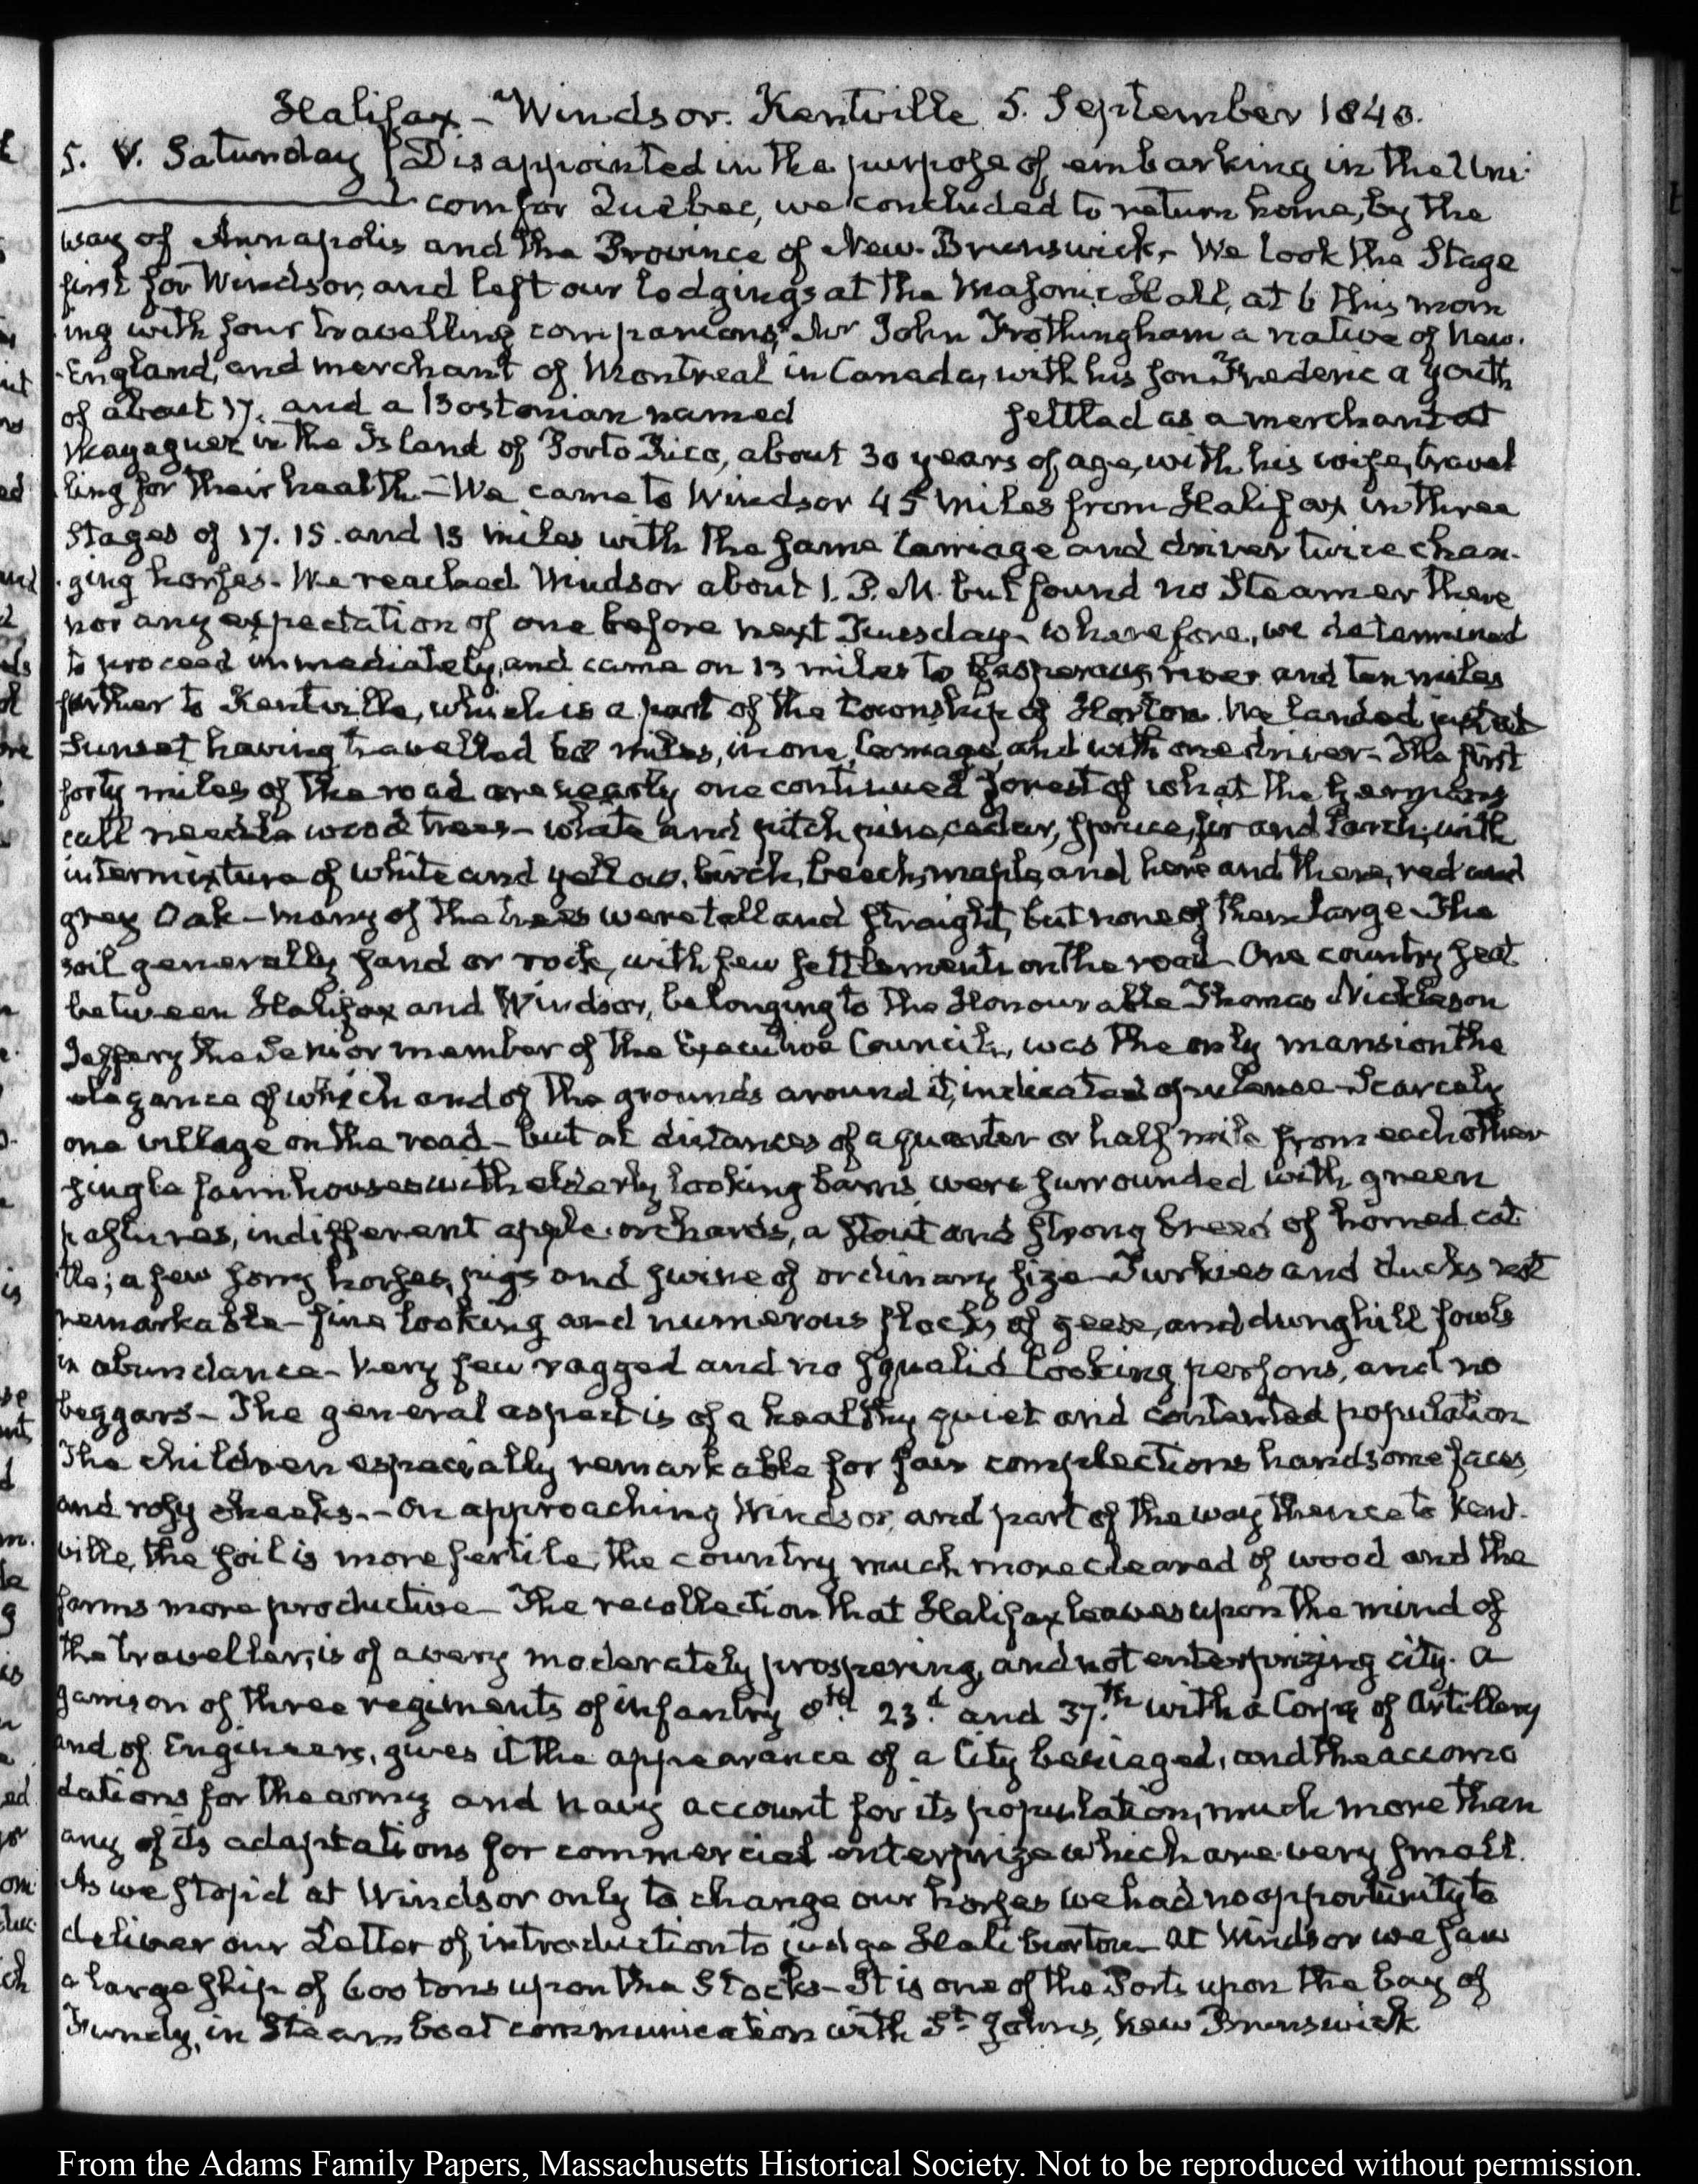 Halifax – Windsor. Kentville 5. September 1840.
5. V. Saturday { Disappointed in the purpose of embarking in the Uni-
corn for Quebec, we concluded to return home, by the
way of Annapolis and the Province of New-Brunswick,– We took the Stage
first for Windsor, and left our lodgings at the Masonic Hall, at 6 this morn
ing with four travelling companions, Mr John Frothingham a native of New-
England, and merchant of Montreal in Canada, with his son Frederic a youth
of about 17. and a Bostonian named settled as a merchant at
Mayaguez in the Island of Porto Rico, about 30 years of age, with his wife, travel
ling for their health – We came to Windsor 45 miles from Halifax in three
Stages of 17. 15. and 13 miles with the same Carriage and driver twice chan-
ging horses. We reached Windsor about 1. P.M. but found no Steamer there
nor any expectation of one before next Tuesday – wherefore, we determined
to proceed immediately, and came on 13 miles to Gasperaux river and ten miles
further to Kentville, which is a part of the township of Horton. We landed just at
Sunset having travelled 68 miles, in one Carriage, and with one driver – The first
forty miles of the road are nearly one continued forest of what the Germans
call needle wood trees – white and pitch pine, cedar, spruce, fir and larch; with
intermixture of white and yellow birch, beech, maple, and here and there, red and
grey Oak – many of the trees were tall and straight, but none of them large – The
soil generally sand or rock, with few settlements on the road – One country seat
between Halifax and Windsor, belonging to the Honourable Thomas Nickleson
Jeffery the Senior member of the Executive Council, was the only mansion the
elegance of which and of the grounds around it, indicated opulence – Scarcely
one village on the road – but at distances of a quarter or half mile from each other
single farm houses with elderly looking barns were surrounded with green
pastures, indifferent apple-orchards, a stout and strong breed of horned cat
tle; a few sorry horses, pigs and swine of ordinary size – Turkies and ducks not
remarkable – fine looking and numerous flocks of geese, and dunghill fowls
in abundance – Very few ragged and no squalid looking persons, and no
beggars – The general aspect is of a healthy quiet and contented population
The children especially remarkable for fair complections handsome faces,
and rosy cheeks. – On approaching Windsor, and part of the way thence to Kent-
ville, the soil is more fertile, the country much more cleared of wood and the
farms more productive – The recollection that Halifax leaves upon the mind of
the traveller, is of a very moderately prospering, and not enterprizing city. A
garrison of three regiments of infantry 8th 23.d and 37.th with a Corps of Artillery
and of Engineers, gives it the appearance of a City besieged, and the accomo
dations for the army and navy account for its population, much more than
any of its adaptations for commercial enterprize which are very small.
As we stop'd at Windsor only to change our horses we had no opportunity to
deliver our Letter of introduction to judge Haliburton – At Windsor we saw
a large ship of 600 tons upon the Stocks – It is one of the Ports upon the bay of
Fundy, in Steam boat communication with St Johns, New Brunswick
From the Adams Family Papers, Massachusetts Historical Society. Not to be reproduced without permission.